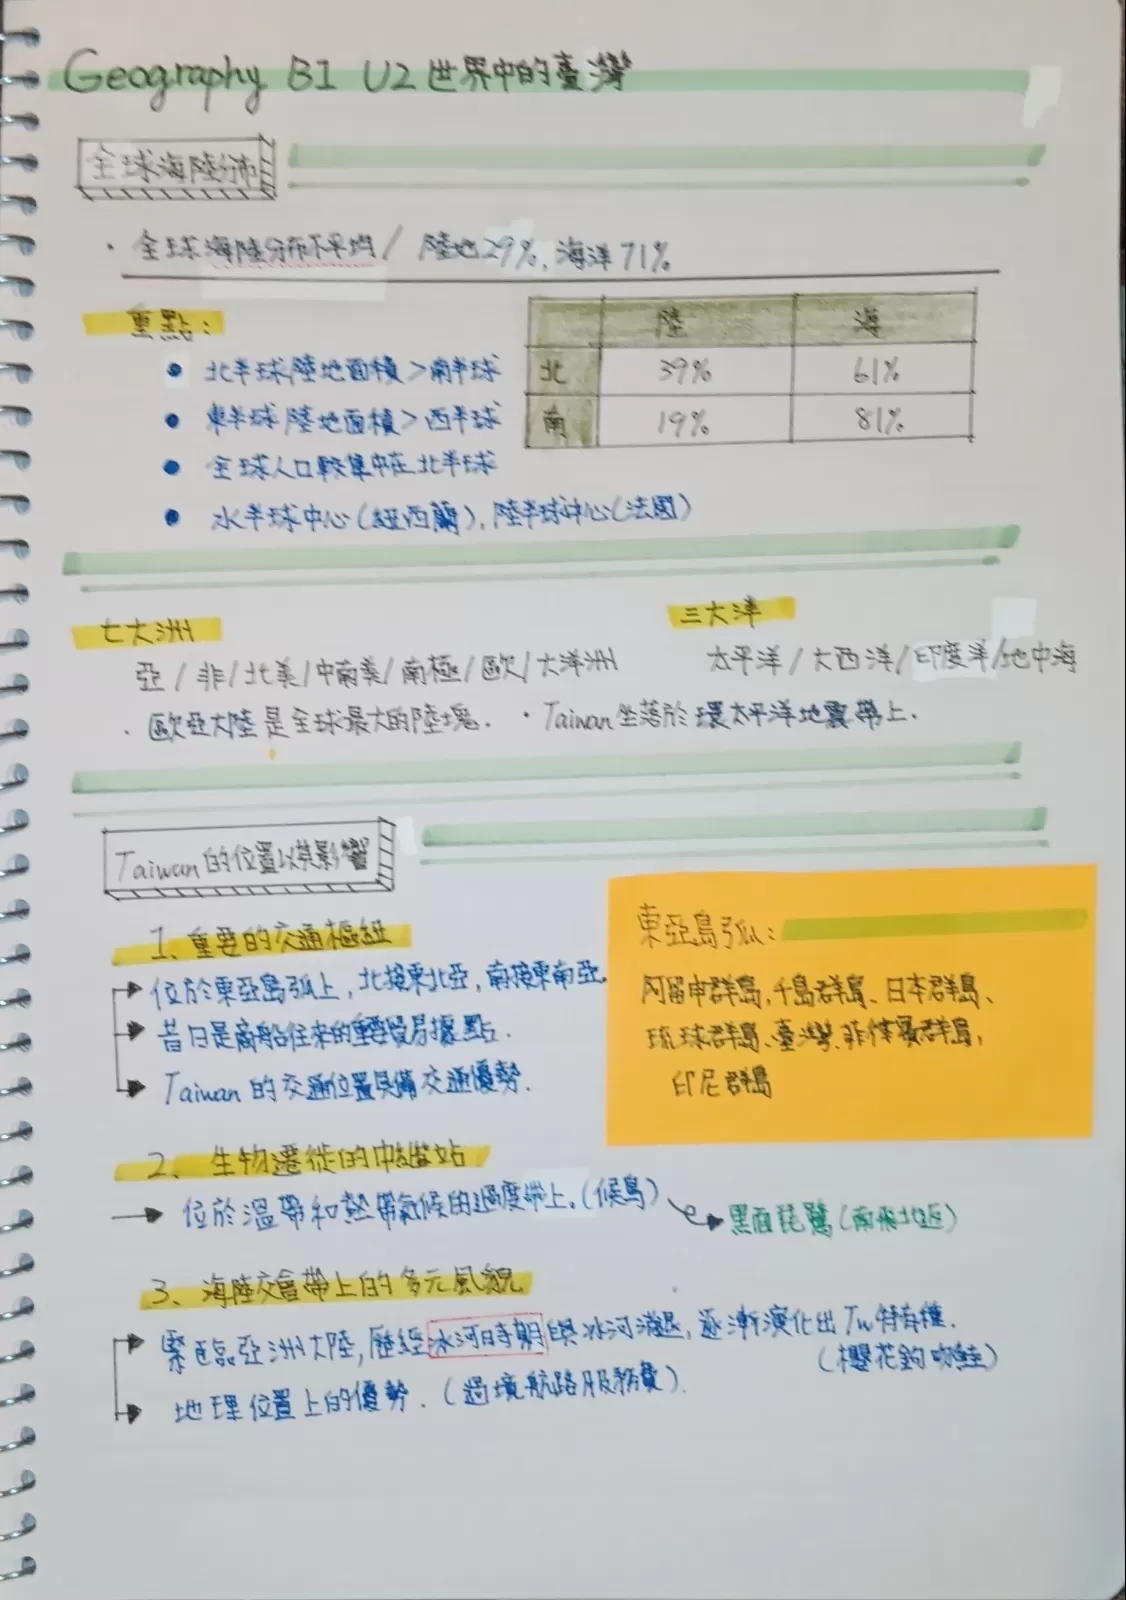 Geography B1 U2 世界中的臺灣
全球海陸分布
· 全球海陸分布不平均 / 陸地29%, 海洋71%
重點:
陸 海
北 39% 61%
南 19% 81%
● 北半球陸地面積 > 南半球
● 東半球陸地面積 > 西半球
● 全球人口較集中在北半球
● 水半球中心(紐西蘭), 陸半球中心(法國)
七大洲
亞 / 非 / 北美 / 中南美 / 南極 / 歐 / 大洋洲
三大洋
太平洋 / 大西洋 / 印度洋 / 地中海
· 歐亞大陸是全球最大的陸塊. · Taiwan坐落於環太平洋地震帶上.
Taiwan的位置以其影響
1. 重要的交通樞紐
位於東亞島弧上, 北接東北亞, 南接東南亞.
昔日是商船往來的重要貿易據點.
Taiwan的交通位置具備交通優勢.
東亞島弧:
阿留申群島, 千島群島、日本群島、
琉球群島、臺灣、菲律賓群島,
印尼群島
2、生物遷徙的中繼站
位於溫帶和熱帶氣候的過度帶上。(候鳥)
黑面琵鷺(南飛北返)
3、海陸交會帶上的多元風貌
緊臨亞洲大陸, 歷經冰河時期與冰河消退, 逐漸演化出Tw特有種.
(櫻花鉤吻鮭)
地理位置上的優勢. (過境航路服務費).